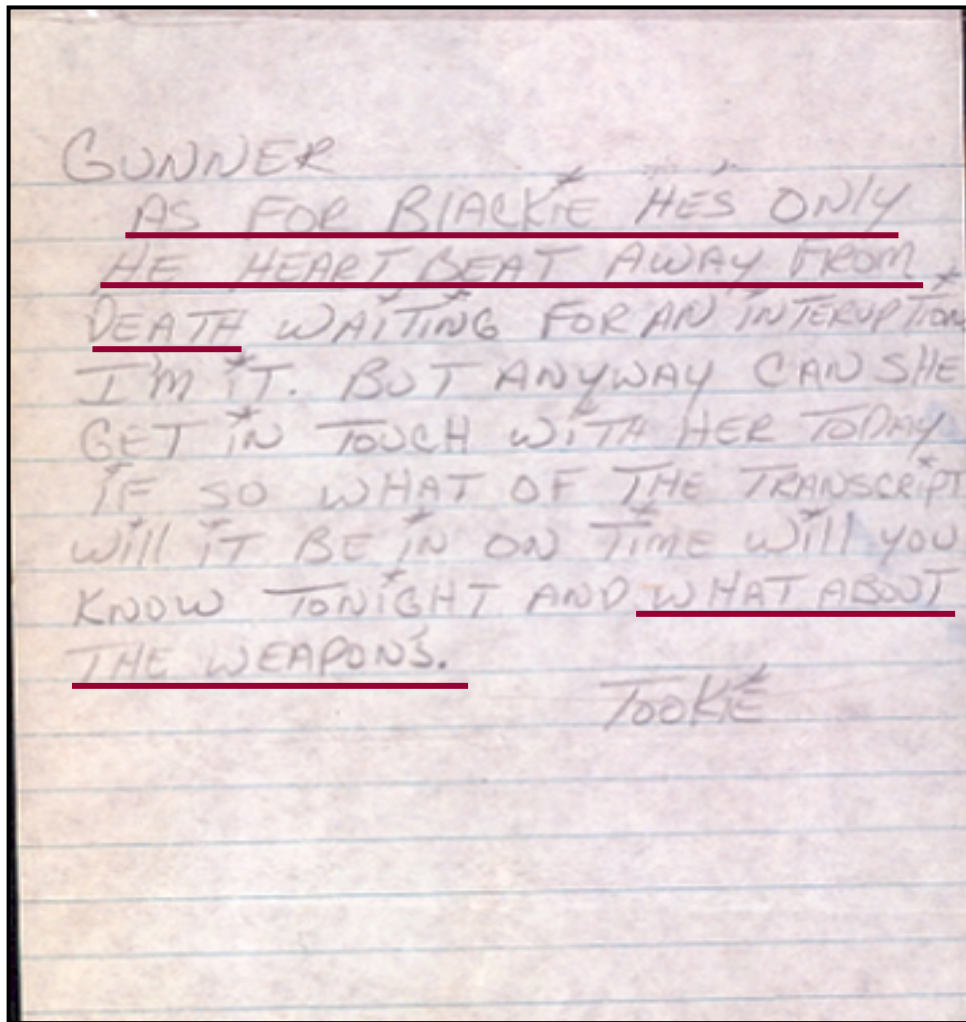 GUNNER
AS FOR BlACKiE HE'S ONlY
HE HEART BEAT AWAY FROM
DEATH WAiTiNG FOR AN iNTERUPTiON
I'M iT. BUT ANYWAY CAN SHE
GET iN TOUCH WiTH HER TODAY
iF SO WHAT OF THE TRANSCRiPT
Will iT BE iN ON TiME Will YOU
KNOW TONiGHT AND WHAT ABOUT
THE WEAPON'S.
TOOKiE